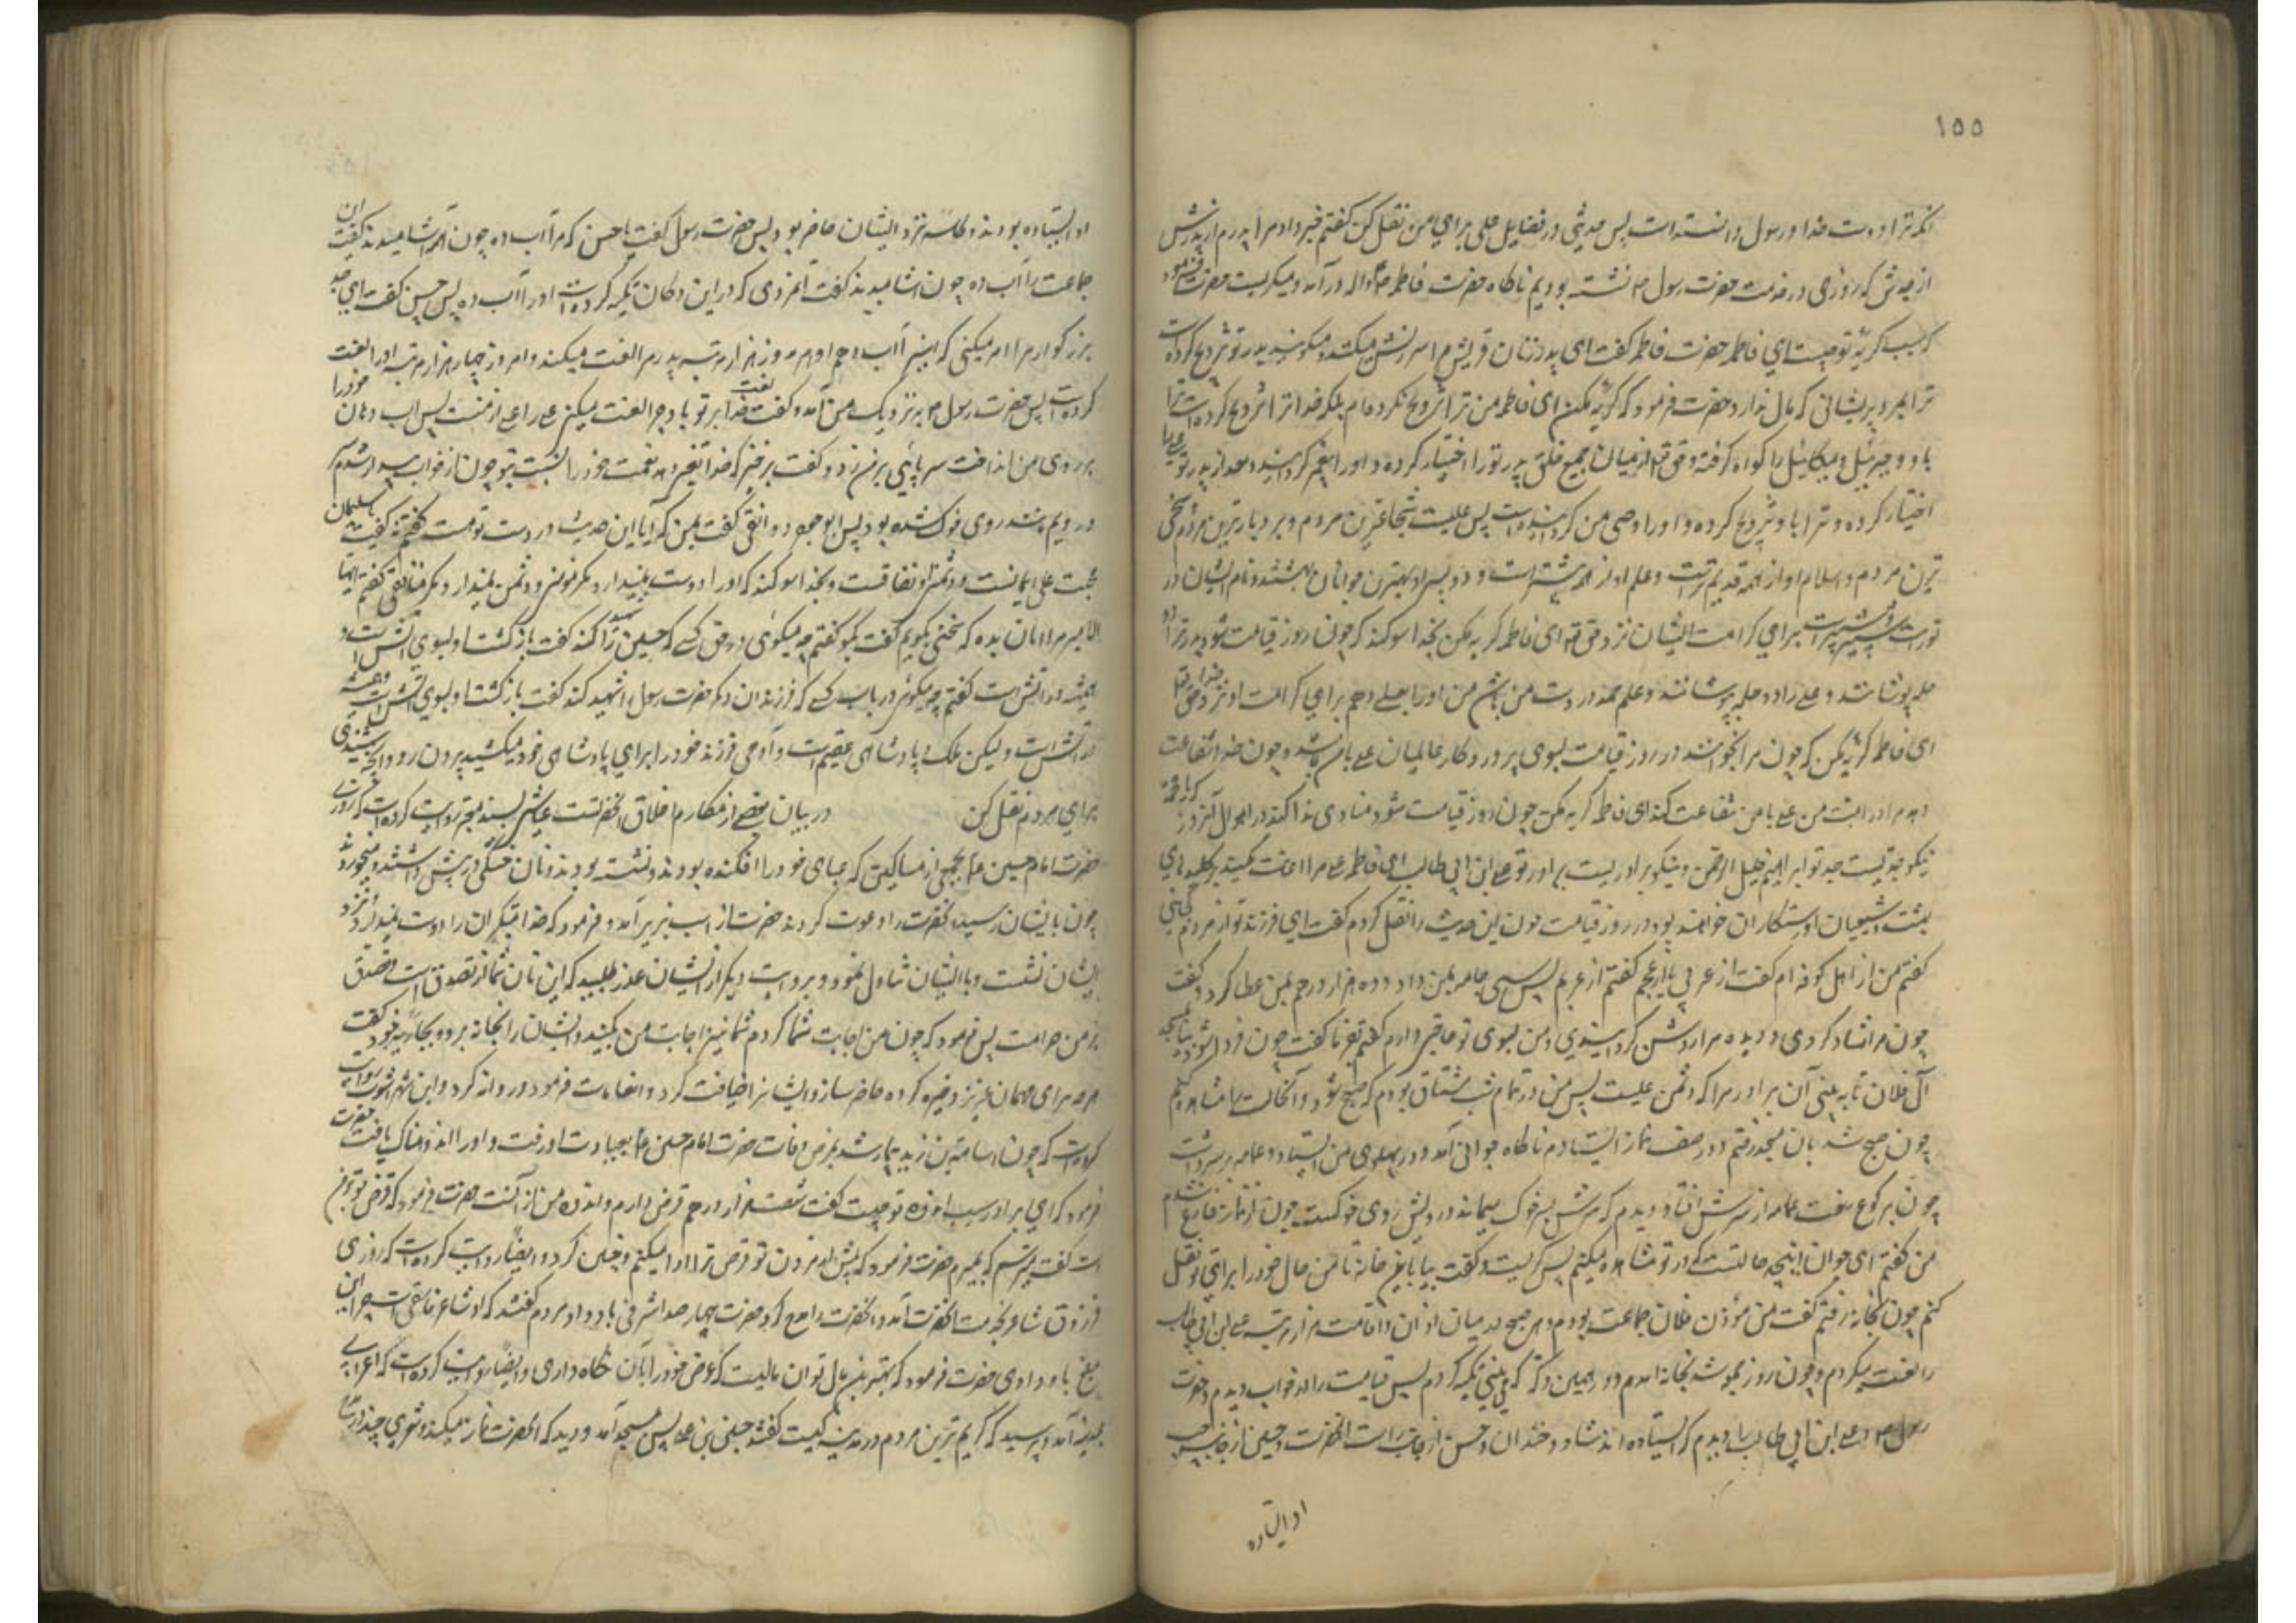 ١٥٥
انکه ترا دوست خدا و رسول دانسته است پس حدیثی در فضایل علی برای من نقل کن گفتم خبر داد مرا پدرم از پدرش
از جدش که روزی در خدمت حضرت رسول نشسته بودیم ناکاه حضرت فاطمه در آمد و میکریست حضرت فرمود
که سبب کریه تو چیست ای فاطمه حضرت فاطمه گفت ای پدر زنان قریش مرا سرزنش میکنند و میکویند پدر تو تزویج کرده است
ترا بمرد پریشانی که مال ندارد حضرت فرمود که کریه مکن ای فاطمه من ترا تزویج نکرده ام بلکه خدا ترا تزویج کرده است
باو و جبرئیل و میکائیل را کواه کرفته و حق تعالی از میان جمیع خلق پدر تو را اختیار کرده و او را پیغمبر کردانیده و بعد از پدر تو علی را
اختیار کرده و ترا باو تزویج کرده و او را وصی من کردانیده است پس علیست شجاعترین مردم و بردبارترین مردم و سخی
ترین مردم و اسلام او از همه قدیم تر است و علم او از همه بیشتر است و دو پسر او بهترین جوانان بهشتند و نام ایشان در
تورات شبر و شبیر است برای کرامت ایشان نزد حق تعالی ای فاطمه کریه مکن بخدا سوکند که چون روز قیامت شود پدر ترا دو
حله پوشانند و علی را دو حله بپوشانند و علم حمد در دست من باشد من او را بعلی دهم برای کرامت او نزد حق تعالی
ای فاطمه کریه مکن که چون مرا بخوانند در روز قیامت بسوی پروردکار عالمیان علی با من باشد و چون خدا شفاعت
دهد مرا در امت من علی با من شفاعت کند ای فاطمه کریه مکن چون روز قیامت شود منادی ندا کند در اهوال آنروز که ای محمد
نیکو جدیست جد تو ابراهیم خلیل الرحمن و نیکو برادریست برادر تو علی ابن ابی طالب ای فاطمه علی مرا اعانت کند بر کلیدهای
بهشت و شیعیان او رستکاران خواهند بود در روز قیامت چون این حدیث را نقل کردم گفت ای فرزند تو از مردم کجائی
گفتم من از اهل کوفه ام گفت از عربی یا از عجم گفتم از عربم پس سی جامه بمن داد و ده هزار درهم بمن عطا کرد و گفت
چون مرا شاد کردی و دیده مرا روشن کردانیدی من بسوی تو حاجتی دارم گفتم بفرما گفت چون فردا شود بیا بمسجد
آل فلان تا به بینی آن برادر مرا که دشمن علیست پس من در تمام شب مشتاق بودم که صبح شود و آنحالت را مشاهده کنم
چون صبح شد بان مسجد رفتم و در صف نماز ایستادم ناکاه جوانی آمد و در پهلوی من ایستاد و عمامه بر سر داشت
چون برکوع رفت عمامه از سرش افتاد دیدم که سرش بسر خوک میماند و رویش روی خوکست چون از نماز فارغ شدم
من گفتم ای جوان اینچه حالتست که در تو مشاهده میکنم پس کریست و گفت بیا باین خانه تا من حال خود را برای تو نقل
کنم چون بخانه رفتم گفت من مؤذن فلان جماعت بودم و هر صبح در میان اذان و اقامت هزار مرتبه علی ابن ابی طالب
را لعنت میکردم و چون روز جمعه شد بخانه آمدم و در همین دکان که می بینی تکیه کردم پس قیامت را در خواب دیدم و حضرت
رسول و علی ابن ابی طالب را دیدم که ایستاده اند شاد و خندان و حسن از جانب راست آنحضرت و حسین از جانب چپ
او ایستاده
او ایستاده بودند و کاسه نزد ایشان حاضر بود پس حضرت رسول گفت یا حسن که مرا آب ده چون آشامیدند گفت این
جماعت را آب ده چون آشامیدند گفت آنمردی که در این دکان تکیه کرده است او را آب ده پس حسن گفت ای جد
بزرکوار مرا امر میکنی که اینرا آب دهم او هر روز هزار مرتبه پدرم را لعنت میکند و امروز چهار هزار مرتبه او را لعنت
کرده است پس حضرت رسول به نزدیک من آمد و گفت لعنت خدا بر تو باد چرا لعنت میکنی علی را علی از منست پس آب دهان خود را
بر روی من انداخت سر پائی بر من زد و گفت برخیز که خدا تغییر دهد نعمت خود را نسبت بتو چون از خواب بیدار شدم
سر و رویم مانند روی خوک شده بود پس ابو جعفر دوانقی گفت بمن که آیا این حدیث در دست تو هست گفتم نه گفت یا سلیمان
محبت علی ایمانست و دشمنی او نفاقست و بخدا سوکند که او را دوست نمیدارد مکر مؤمن و دشمن نمیدارد مکر منافق گفتم ایها
الامیر مرا امان بده که سخنی بکویم گفت بکو گفتم چه میکوئی در حق کسی که حسین را شهید کند گفت بازکشت او بسوی آتش است و
همیشه در آتش است گفتم چه میکوئی در باب کسی که فرزندان دیکر حضرت رسول را شهید کند گفت بازکشت او بسوی آتش است و همیشه
در آتش است و لیکن ملک پادشاهی عقیم است و آدمی فرزند خود را برای پادشاهی خود میکشد بیرون رو و آنچه شنیدی
برای مردم نقل کن در بیان بعضی از مکارم اخلاق آنحضرتست عیاشی بسند معتبر روایت کرده است که روزی
حضرت امام حسین بجمعی از مساکین که عبای خود را افکنده بودند و نشسته بودند و نان خشکی در پیش داشتند و میخوردند
چون بایشان رسید آنحضرت را دعوت کردند حضرت از اسب بزیر آمد و فرمود که خدا متکبران را دوست نمیدارد و نزد
ایشان نشست و با ایشان تناول نمود و بروایت دیکر از ایشان عذر طلبید که این نان شما از تصدق است و تصدق
بر من حرامست پس فرمود که چون من اجابت شما کردم شما نیز اجابت من بکنید و ایشان را بخانه برد و بجاریه خود گفت
هرچه برای مهمان عزیز ذخیره کرده حاضر ساز و ایشانرا ضیافت کرد و انعامات فرمود و روانه کرد و ابن شهر آشوب روایت
کرده است که چون اسامة بن زید بیمار شد بمرض وفات حضرت امام حسین بعیادت او رفت و او را اندوهناک یافت حضرت
فرمود که ای برادر سبب اندوه تو چیست گفت شصت هزار درهم قرض دارم و اندوه من از آنست حضرت فرمود که قرض تو بر من
است گفت میترسم که بمیرم حضرت فرمود که پیش از مردن تو قرض ترا ادا میکنم و چنین کرد و ایضا روایت کرده است که روزی
فرزدق شاعر بخدمت آنحضرت آمد و آنحضرت را مدح کرد حضرت چهار صد اشرفی باو داد مردم گفتند که او شاعر فاسقی است چرا این
مبلغ باو دادی حضرت فرمود که بهترین مال تو آن مالیست که عرض خود را بآن نکاه داری و ایضا روایت کرده است که اعرابی
بمدینه آمد و پرسید که کریم ترین مردم در مدینه کیست گفتند حسین بن علی پس بمسجد آمد و دید که آنحضرت نماز میکند و شعری چند در